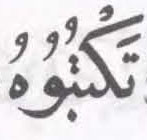 تَكْتُبُوْهُ